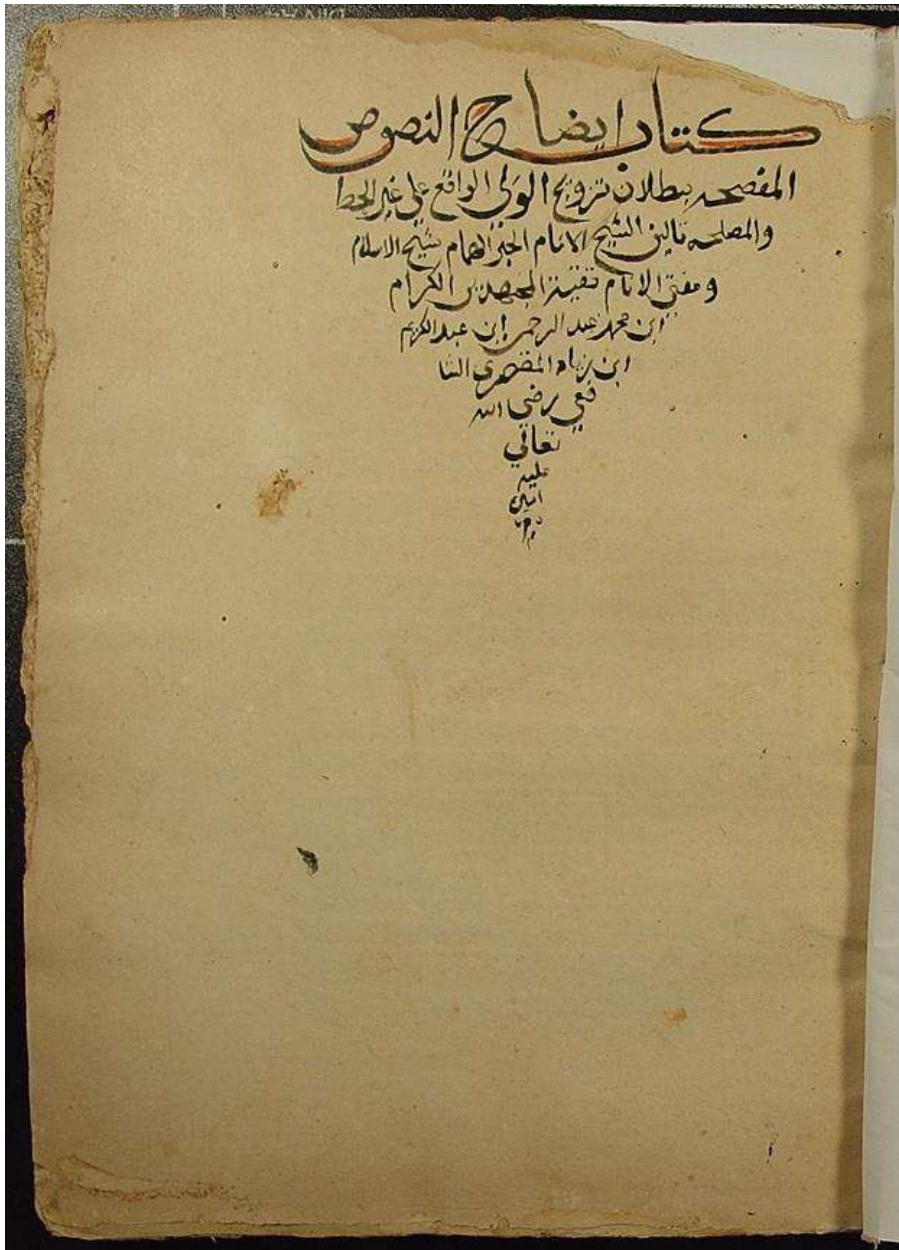 كتاب ايضاح النصوص
المفصحه ببطلان تزويج الولي الواقع علي غير الحظ
والمصلحه تاليف الشيخ الامام الحبر الهمام شيخ الاسلام
ومفتي الانام بقية المجتهدين الكرام
ابن محمد عبد الرحمن ابن عبد الكريم
ابن زياد المقصري الشا
فعي رضي الله
تعالي
عليه
امين